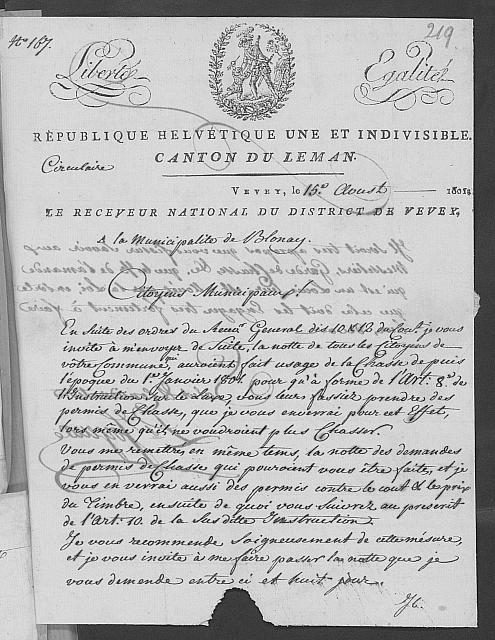 N.º 167.
219
Liberté
Egalité
RÉPUBLIQUE HELVÉTIQUE UNE ET INDIVISIBLE.
CANTON DU LEMAN.
Circulaire
VEVEY, le 15.e Aoust 1801
LE RECEVEUR NATIONAL DU DISTRICT DE VEVEY,
A la Municipalité de Blonay.
Citoyens Municipaux!
En suite des ordres du Receveur General des 10 & 12 du Cou.t je vous
invite à m'envoyer de suite, la notte de tous les Citoyens de
vôtre Commune, qui auroient fait usage de la Chasse depuis
l'epoque du 1.er Janvier 1801 pour qu'à forme de l'Art: 8.e de
l'Instruction sur le vous leur fassiez prendre des
permis de Chasse, que je vous enverrai pour cet Effet,
lors même qu'ils ne voudroient plus Chasser.
Vous me remetrez en même tems, la notte des demandes
de permis de Chasse qui pouroient vous être faite, et je
vous en verrai aussi des permis contre le cout & le prix
du Timbre, ensuite de quoi vous suivrez au prescrit
de l'Art: 10. de la Susdite Instruction.
Je vous recommende soigneusement de cette mesure,
et je vous invite à me faire passer la notte que je
vous demende entre ci et huit jour.